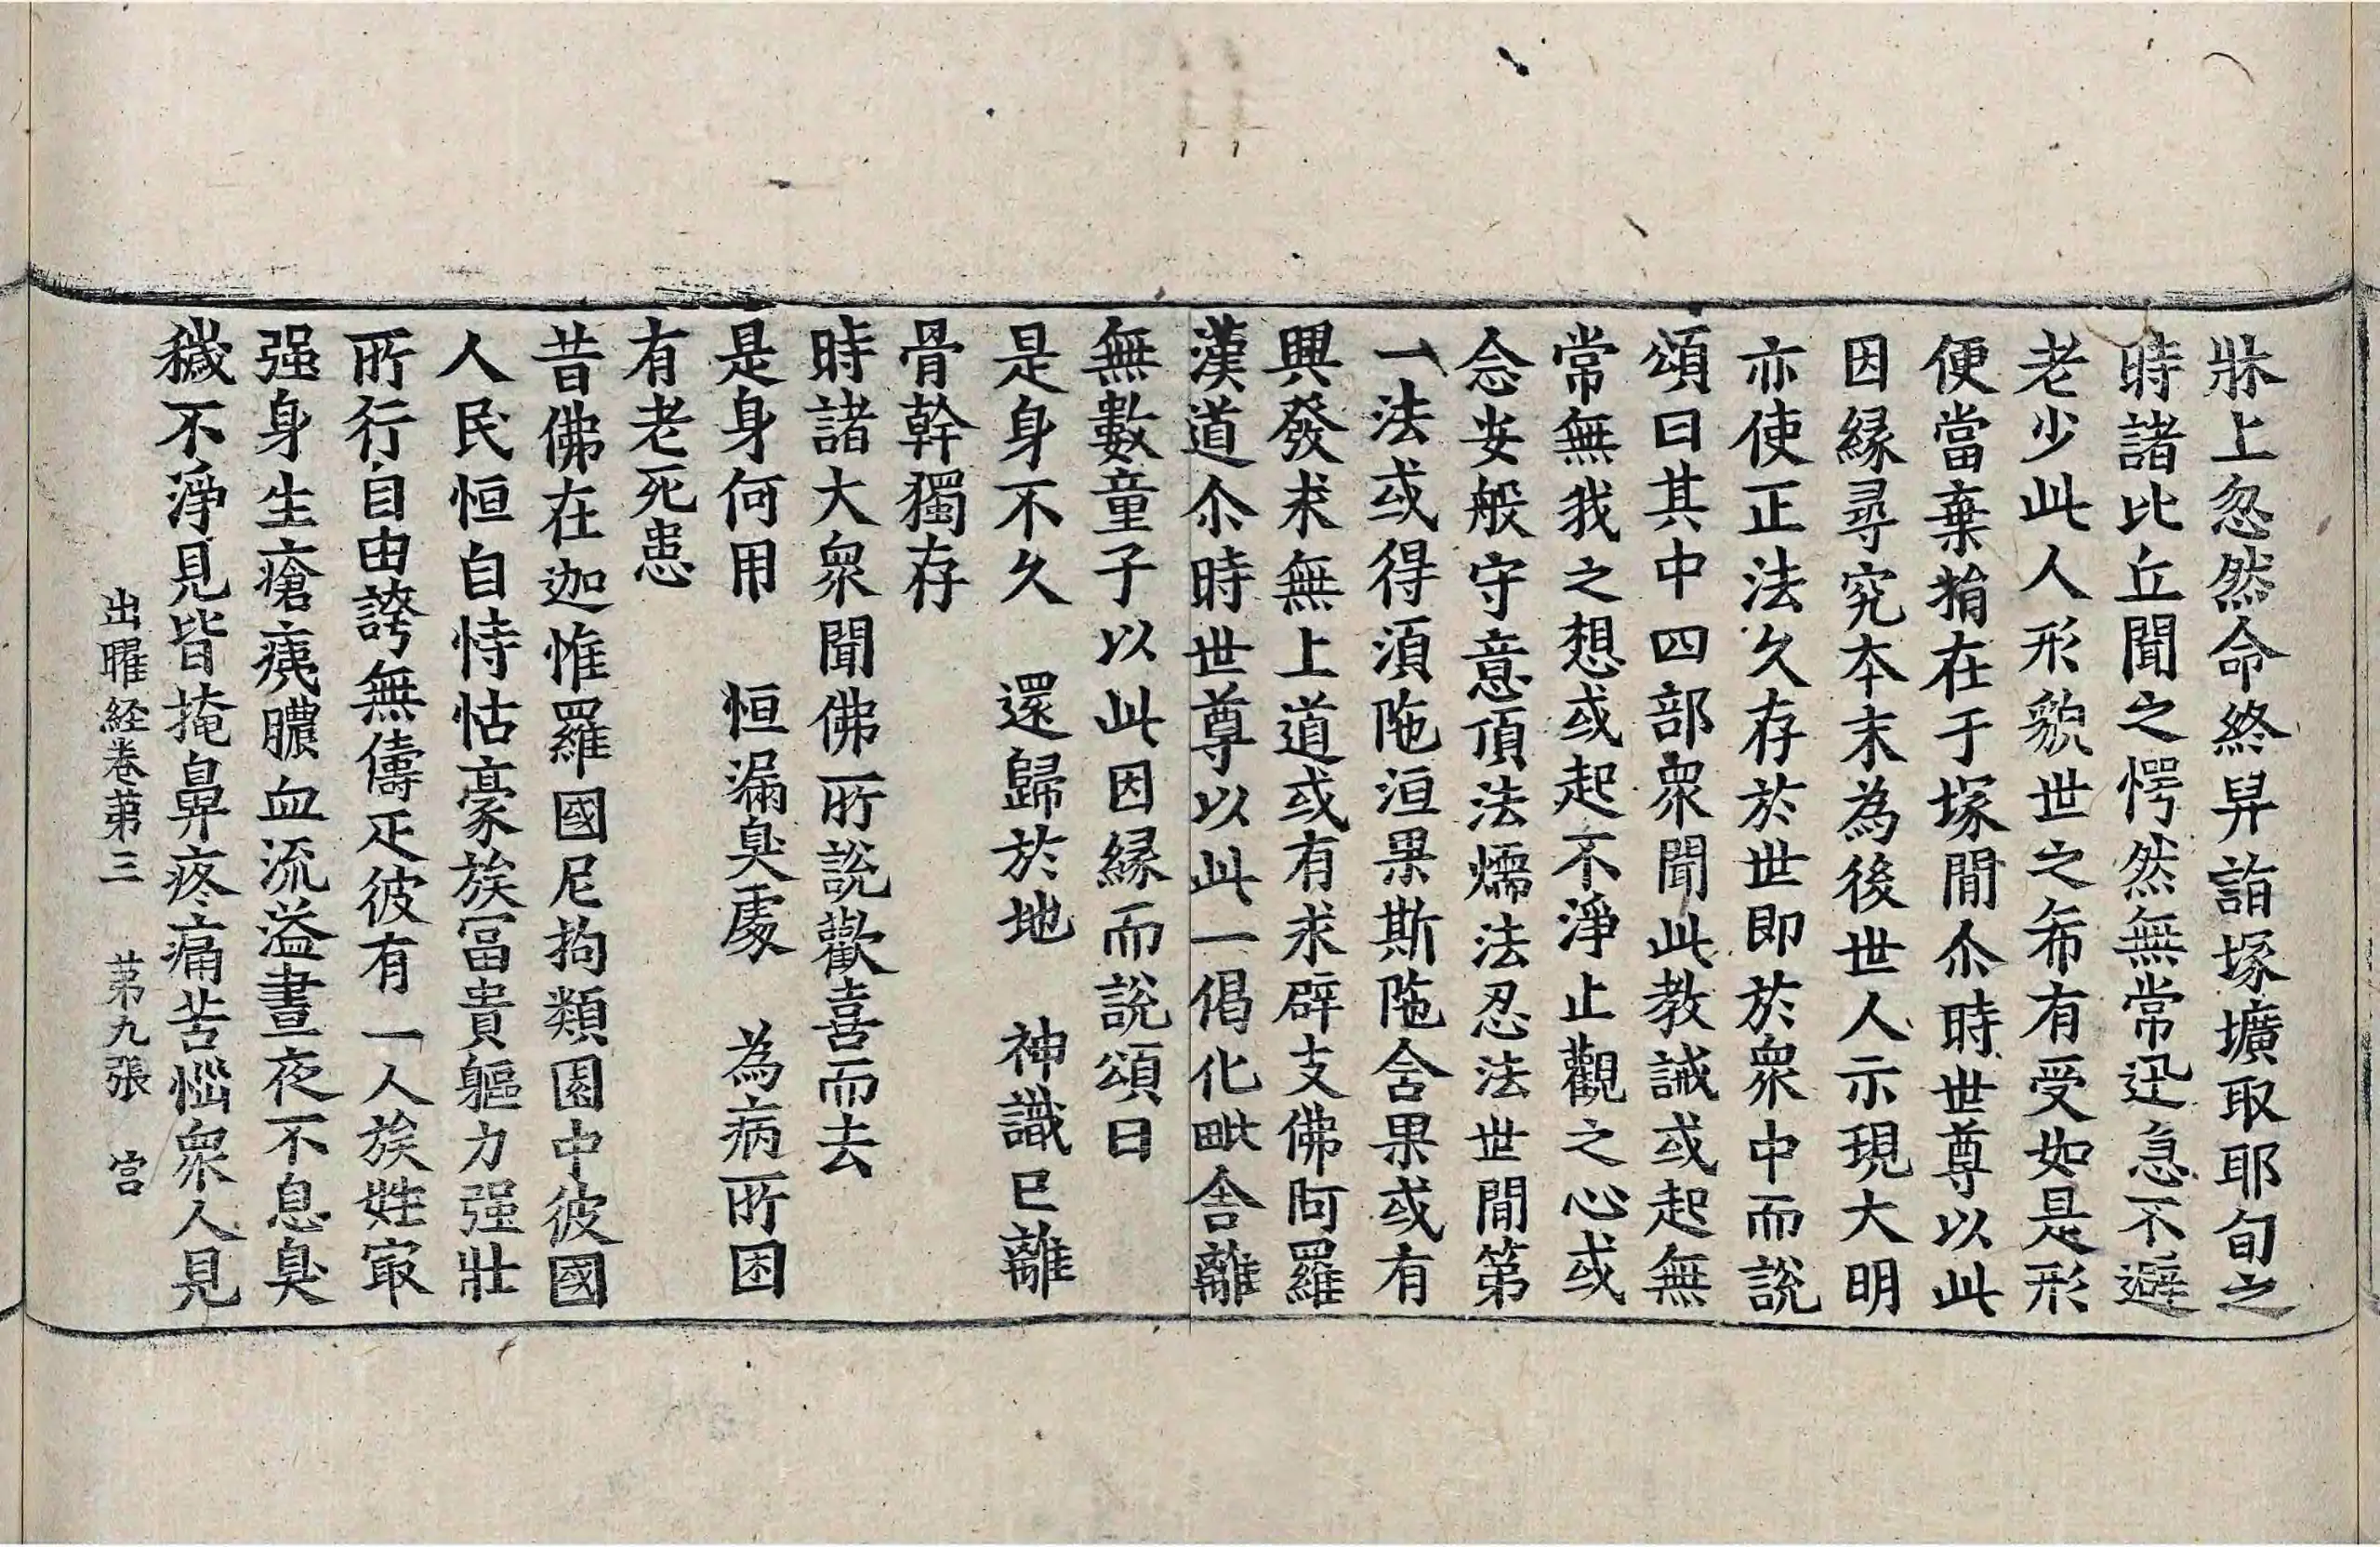 牀上忽然命終舁詣塚壙取耶旬之
時諸比丘聞之愕然無常迅急不避
老少此人形貌世之希有受如是形
便當棄捐在于塚間尒時世尊以此
因緣尋究本末為後世人示現大明
亦使正法久存於世即於衆中而說
頌曰其中四部衆聞此教誡或起無
常無我之想或起不淨止觀之心或
念安般守意頂法燸法忍法世間第
一法或得湏陁洹果斯陁含果或有
興發求無上道或有求辟支佛阿羅
漢道尒時世尊以此一偈化毗舍離
無數童子以此因緣而說頌曰
是身不久　還歸於地　神識已離
骨幹獨存
時諸大衆聞佛所說歡喜而去
是身何用　恒漏臭處　為病所困
有老死患
昔佛在迦惟羅國尼拘類園中彼國
人民恒自恃怙豪族冨貴軀力强壯
所行自由誇無儔疋彼有一人族姓㝡
强身生瘡痍膿血流溢晝夜不息臭
穢不淨見皆掩鼻疼痛苦惱衆人見
出曜経卷苐三　苐九張　宫